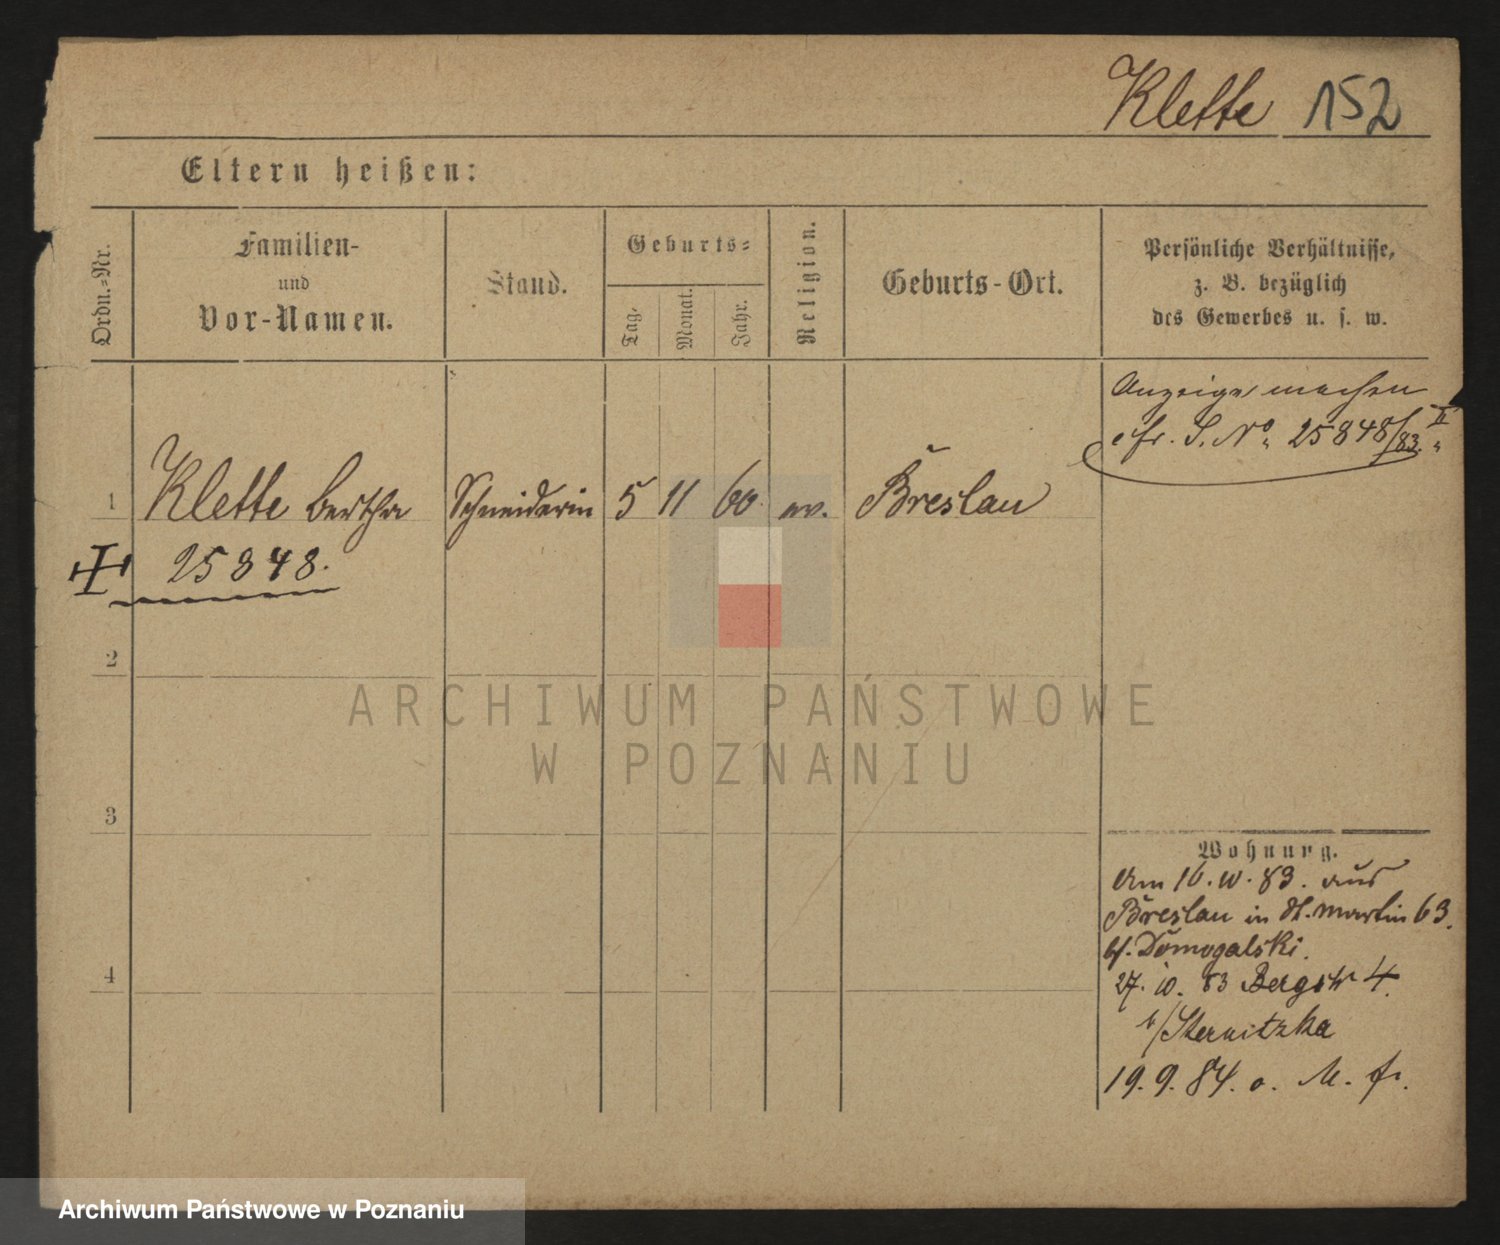 Klette 152
Eltern heißen:
Ordn.-Nr.
Familien-
und
Vor-Namen.
Stand.
Geburts-
Tag.
Monat.
Jahr.
Religion.
Geburts-Ort.
Persönliche Verhältnisse,
z. B. bezüglich
des Gewerbes u. s. w.
Anzeige machen
cfr. S. No. 25848/83. II
1 Klette Bertha Schneiderin 5 11 60. ev. Breslau
25848.
2
3
4
Wohnung.
Am 16. 10. 83. aus
Breslau in St. Martin 63.
b/. Domogalski.
27. 10. 83 Bergstr 4.
b/Sternitzka
19. 9. 84. o.
ARCHIWUM PAŃSTWOWE
W POZNANIU
Archiwum Państwowe w Poznaniu